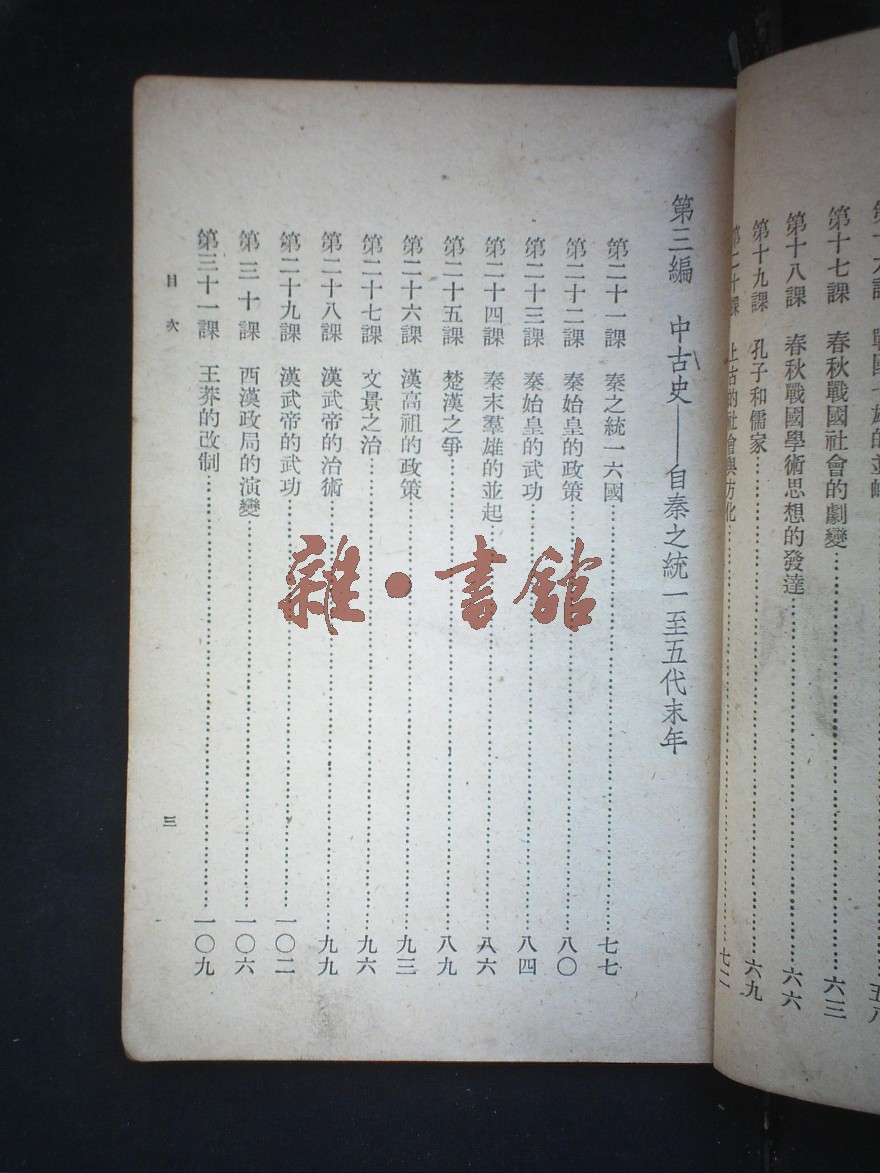 五八
第十七課 春秋戰國社會的劇變……六三
第十八課 春秋戰國學術思想的發達……六六
第十九課 孔子和儒家……六九
第二十課 上古的社會與文化……七二
第三編 中古史——自秦之統一至五代末年
第二十一課 秦之統一六國……七七
第二十二課 秦始皇的政策……八〇
第二十三課 秦始皇的武功……八四
第二十四課 秦末羣雄的並起……八六
第二十五課 楚漢之爭……八九
第二十六課 漢高祖的政策……九三
第二十七課 文景之治……九六
第二十八課 漢武帝的治術……九九
第二十九課 漢武帝的武功……一〇二
第三十課 西漢政局的演變……一〇六
第三十一課 王莽的改制……一〇九
目次
三
雜·書館